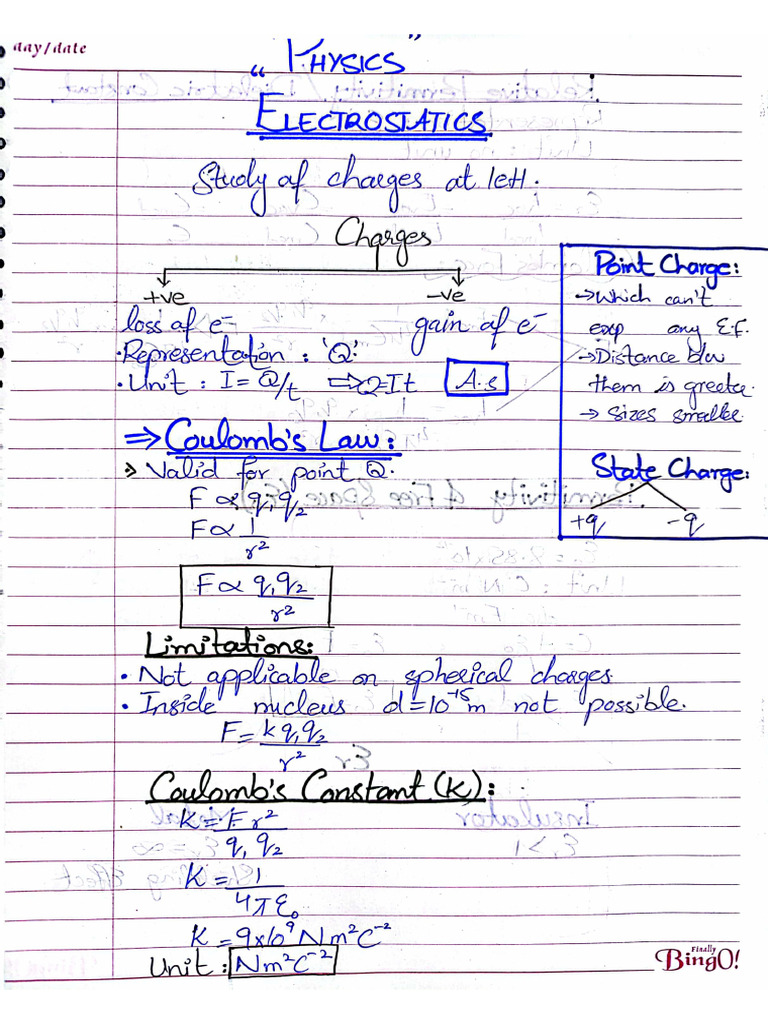 day/date
" PHYSICS "
ELECTROSTATICS
Study of charges at rest.
Charges
+ve -ve
loss of e⁻ gain of e⁻
• Representation : 'Q'
• Unit : I = Q/t ⇒ Q=It A.s
Point Charge:
→ Which can't
exp any E.F.
→ Distance b/w
them is greater.
→ Sizes smaller.
State Charge:
+q -q
⇒ Coulomb's Law:
→ Valid for point Q.
F ∝ q₁q₂
F ∝ 1/r²
F ∝ q₁q₂/r²
Limitations:
• Not applicable on spherical charges.
• Inside nucleus d=10⁻¹⁵m not possible.
F = k q₁q₂/r²
Coulomb's Constant (K):
K = F r²/q₁ q₂
K = 1/4πε₀
K = 9x10⁹ Nm²C⁻²
Unit : Nm²C⁻²
Finally
BingO!